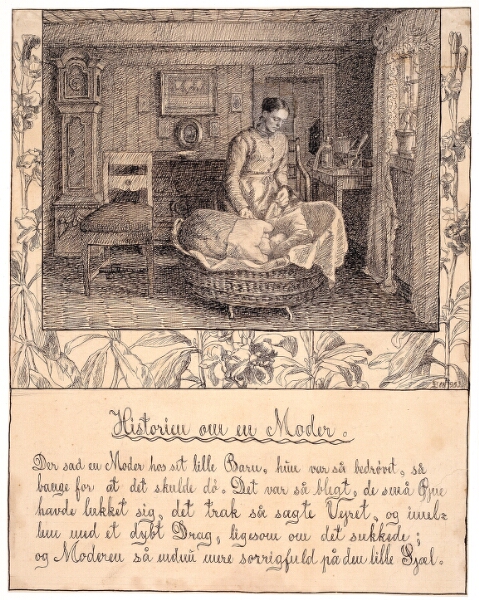 Historien om en Moder.
Der sad en Moder hos sit lille Barn, hun var så bedrøvet, så
bange for at det skulde dö. Det var så blegt, de små Öjne
havde lukket sig, det trak så sagte Vejret, og imel-
lem med et dybt Drag, ligesom om det sukkede;
og Moderen så endnu mere sorrigfuld på den lille Sjæl.